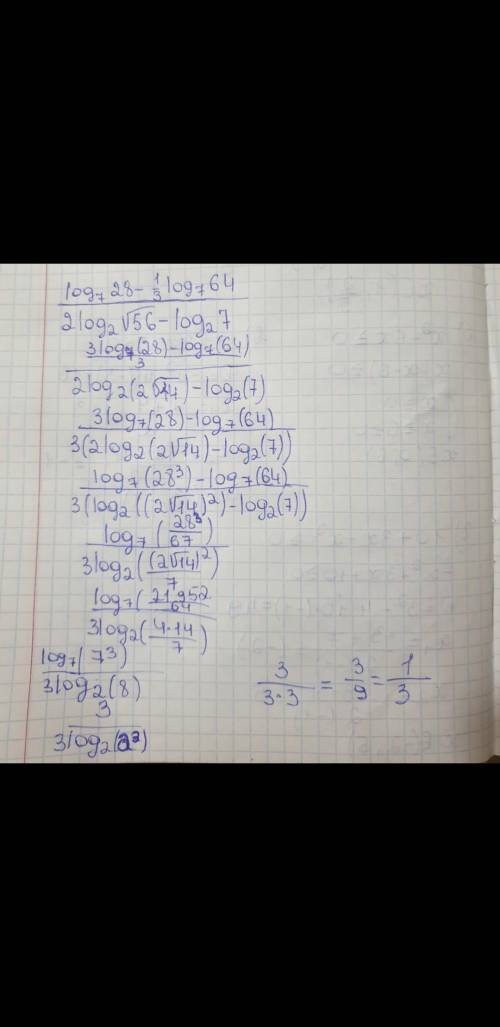 log₇28 - 1/3 log₇64
2log₂√56 - log₂7
3log₇(28) - log₇(64)
3
2log₂(2√14) - log₂(7)
3log₇(28) - log₇(64)
3(2log₂(2√14) - log₂(7))
log₇(28³) - log₇(64)
3(log₂((2√14)²) - log₂(7))
log₇(28³/67)
3log₂((2√14)²/7)
log₇(21952/64
3log₂(4·14/7)
log₇(7³)
3log₂(8)
3
3log₂(2³)
3/3·3 = 3/9 = 1/3